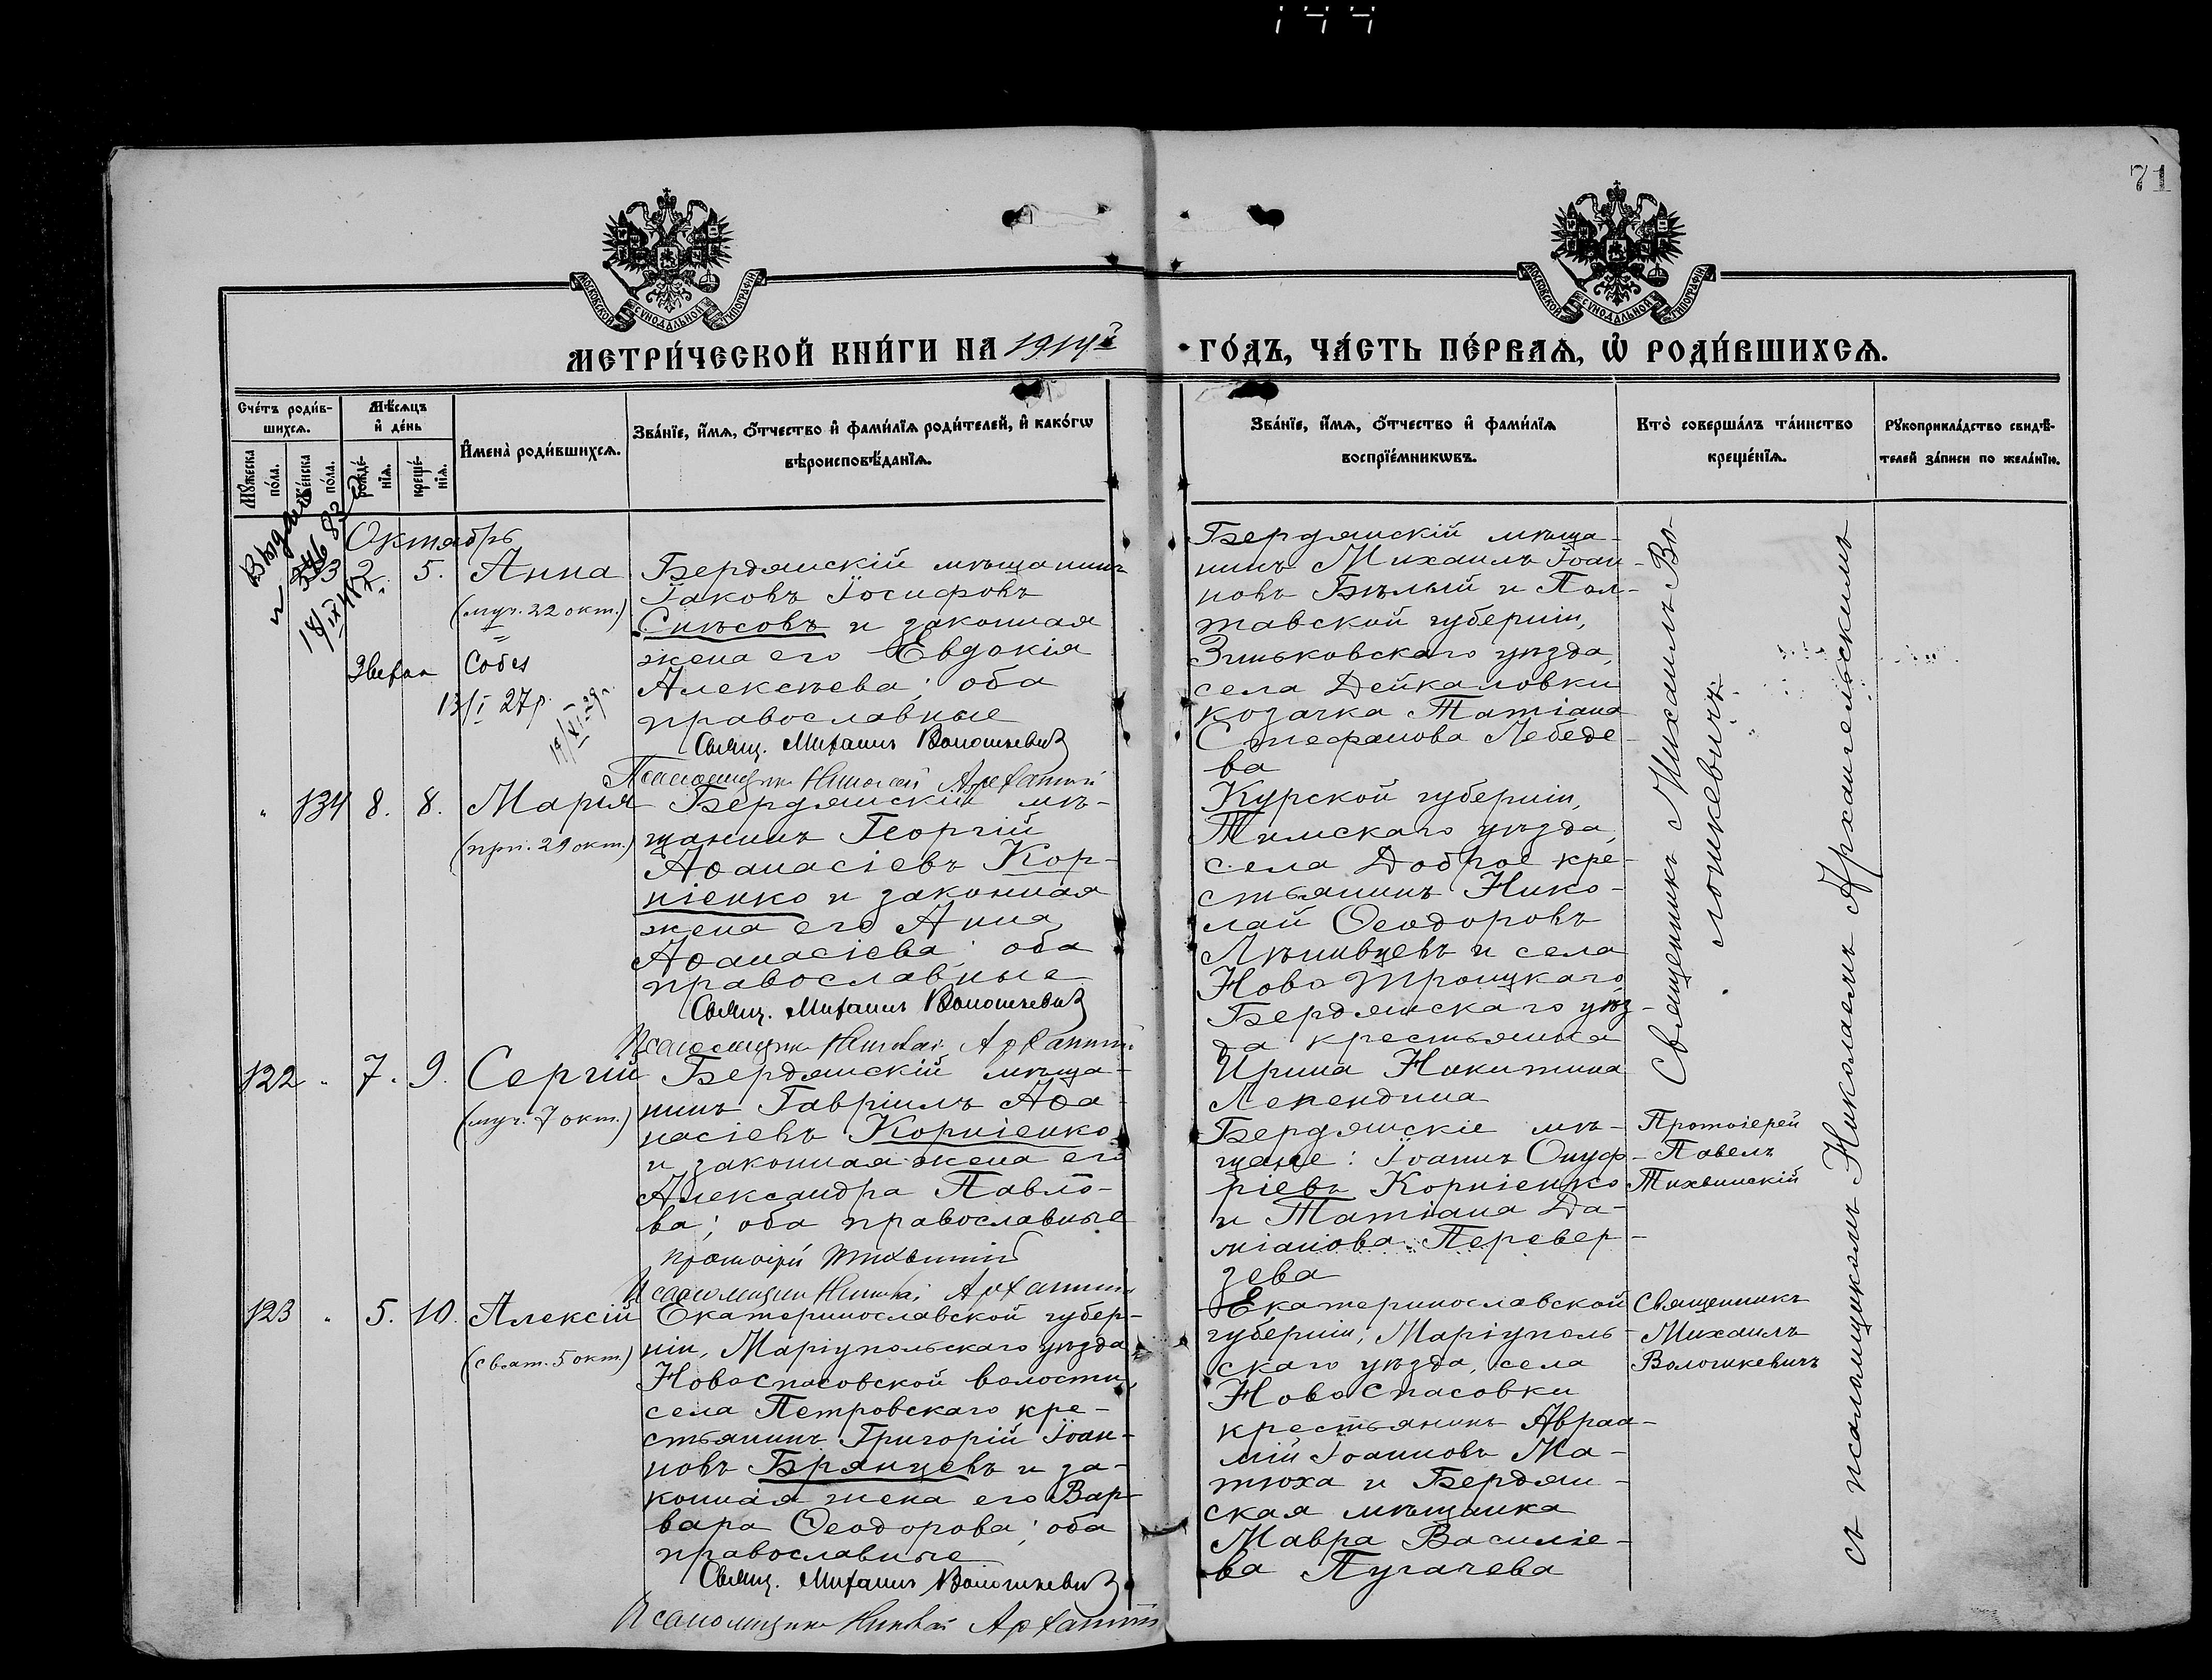 144
71
МОСКОВСКОЙ СѴНОДАЛЬНОЙ ТИПОГРАФІИ
МОСКОВСКОЙ СѴНОДАЛЬНОЙ ТИПОГРАФІИ
МЕТРИ́ЧЕСКОЙ КНИ́ГИ НА 1914й
ГО́ДЪ, ЧА́СТЬ ПЕ́РВАѦ, Ѡ҆ РОДИ́ВШИХСѦ.
Сче́тъ роди́в-
шихсѧ.
Мѣ́сѧцъ
и҆ де́нь
Мꙋ́жеска
по́ла.
же́нска
по́ла.
рожде́-
нїѧ.
креще́-
нїѧ.
И҆мена̀ роди́вшихсѧ.
Зва́нїе, и҆́мѧ, ѻ҆́тчество и҆ фами́лїѧ роди́телей, и҆ како́гѡ
вѣроисповѣ́данїѧ.
Зва́нїе, и҆́мѧ, ѻ҆́тчество и҆ фами́лїѧ
воспрїе́мникѡвъ.
Кто̀ соверша́лъ та́инство
креще́нїѧ.
Рꙋкоприкла́дство свидѣ́-
телей за́писи по жела́нїю.
Октябрь
133 2. 5. Анна
(муч. 22 окт.)
Собез
13/I 27 г.
Бердянскій мѣщанинъ
Іаковъ Іосифовъ
Снѣсовъ и законная
жена его Евдокія
Алексѣева; оба
православные
Свящ. Михаилъ Волошкевич
Псаломщикъ Николай Архангел
Бердянскій мѣща-
нинъ Михаилъ Іоан-
новъ Бѣлый и Пол-
тавской губерніи,
Зиньковскаго уѣзда,
села Дейкаловки
козачка Татіана
Стефанова Лебеде-
ва
" 134 8. 8. Марія
(прп. 29 окт.)
Бердянскій мѣ-
щанинъ Георгій
Аѳанасіевъ Кор-
ніенко и законная
жена его Анна
Аѳанасіева; оба
православные
Свящ. Михаилъ Волошкевич
Псаломщикъ Николай Архангел
Курской губерніи,
Тимскаго уѣзда,
села Доброе кре-
стьянинъ Нико-
лай Ѳеодоровъ
Лѣнивцевъ и села
Ново Троицкаго
Бердянскаго уѣз-
да крестьянка
Ирина Никитина
Лепендина
Священникъ Михаилъ Во-
лошкевичъ
съ псаломщикомъ Николаемъ Архангельскимъ
122 " 7. 9. Сергій
(муч. 7 окт.)
Бердянскій мѣща-
нинъ Гавріилъ Аѳа-
насіевъ Корніенко
и законная жена его
Александра Павло-
ва; оба православные
Протоіерей Тихвинскій
Псаломщикъ Николай Архангел
Бердянскіе мѣ-
щане: Іоаннъ Онуф-
ріевъ Корніенко
и Татіана Да-
міанова Перевер-
зева
Протоіерей
Павелъ
Тихвинскій
123 " 5. 10. Алексій
(свят. 5 окт.)
Екатеринославской губер-
ніи, Маріупольскаго уѣзда
Новоспасовской волости,
села Петровскаго кре-
стьянинъ Григорій Іоан-
новъ Брянцевъ и за-
конная жена его Вар-
вара Ѳеодорова; оба
православные
Свящ. Михаилъ Волошкевич
Псаломщикъ Николай Архангел
Екатеринославской
губерніи, Маріуполь-
скаго уѣзда, села
Ново Спасовки
крестьянинъ Авраа-
мій Іоанновъ Ма-
тюха и Бердян-
ская мѣщанка
Мавра Василіе-
ва Пугачева
Священникъ
Михаилъ
Волошкевичъ